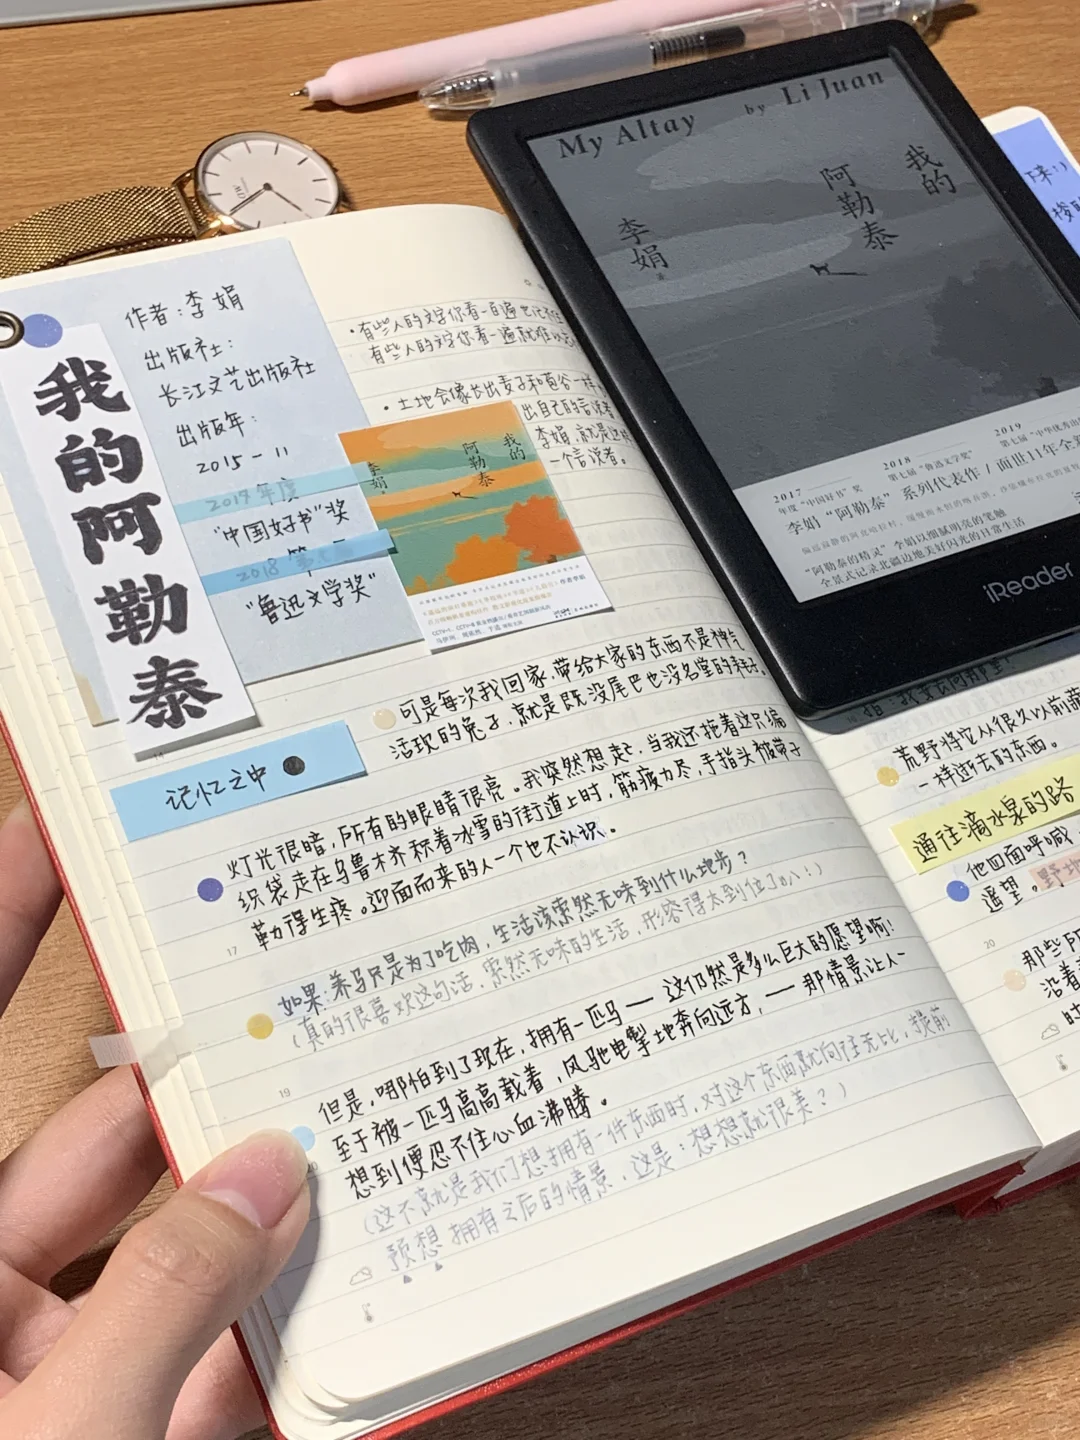 我的阿勒泰
作者:李娟
出版社:
长江文艺出版社
出版年:
2015-11
年度
"中国好书"奖
2018 第七届
"鲁迅文学奖"
·有些人的文字你看一百遍也记不住
有些人的文字你看一遍就难以忘
·土地会像长出麦子和苞谷一样,
出自己的言说者
李娟,就是这样
一个言说者。
我的
阿勒泰
李娟
可是每次我回家,带给大家的东西不是神气
活现的兔子,就是既没尾巴也没名堂的耗子。
记忆之中
灯光很暗,所有的眼睛很亮。我突然想起,当我还拖着这只编
织袋走在乌鲁木齐积着冰雪的街道上时,筋疲力尽,手指头被带子
勒得生疼。迎面而来的人一个也不认识。
17
如果:养马只是为了吃肉,生活该索然无味到什么地步?
(真的很喜欢这句话,索然无味的生活,形容得太到位了叭!)
19
但是,哪怕到了现在,拥有一匹马——这仍然是多么巨大的愿望啊!
至于被一匹马高高载着,风驰电掣地奔向远方,——那情景让人一
想到便忍不住心血沸腾。
(这不就是我们想拥有一件东西时,对这个东西就向往无比,提前
预想 拥有之后的情景,这是:想想就很美?)
My Altay by Li Juan
我的
阿勒泰
李娟
2017
年度"中国好书"奖
2018
第七届"鲁迅文学奖"
2019
李娟"阿勒泰"系列代表作/面世11年全
"阿勒泰的精灵"李娟以细腻明亮的笔触
全景式记录北疆边地美好闪光的日常生活
iReader
荒野将它从很久以前
一样逝去的东西。
通往滴水泉的路
他四面呼喊
遥望。野地
20
那些
沿着
时